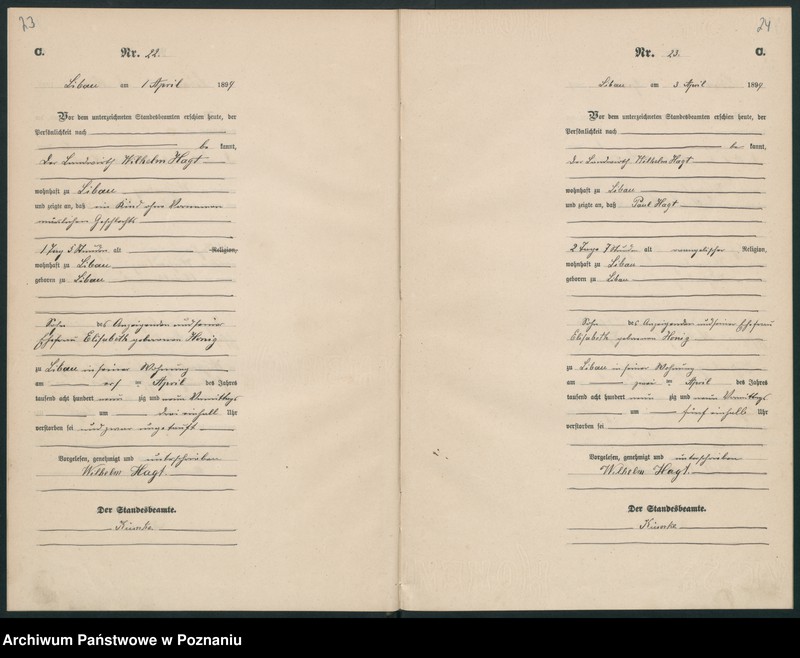 23
C.
Nr. 22.
Libau am 1 April 1899
Vor dem unterzeichneten Standesbeamten erschien heute, der
Persönlichkeit nach
be kannt,
der Landwirth Wilhelm Hagt
wohnhaft zu Libau
und zeigte an, daß ein Kind ohne Vornamen
männlichen Geschlechts
1 Tag 5 Stunden alt Religion,
wohnhaft zu Libau
geboren zu Libau
Sohn des Anzeigenden und seiner
Ehefrau Elisabeth geborenen Hönig
zu Libau in seiner Wohnung
am ersten April des Jahres
tausend acht hundert neun zig und neun Vormittags
um drei einhalb Uhr
verstorben sei und zwar ungetauft
Vorgelesen, genehmigt und unterschrieben
Wilhelm Hagt.
Der Standesbeamte.
24
Nr. 23.
C.
Libau am 3 April 1899
Vor dem unterzeichneten Standesbeamten erschien heute, der
Persönlichkeit nach
be kannt,
der Landwirth Wilhelm Hagt
wohnhaft zu Libau
und zeigte an, daß Paul Hagt
2 Tage 7 Stunden alt evangelischer Religion,
wohnhaft zu Libau
geboren zu Libau
Sohn des Anzeigenden und seiner Ehefrau
Elisabeth geborenen Hönig
zu Libau in seiner Wohnung
am zwei ten April des Jahres
tausend acht hundert neun zig und neun Vormittags
um fünf einhalb Uhr
verstorben sei
Vorgelesen, genehmigt und unterschrieben
Wilhelm Hagt.
Der Standesbeamte.
Archiwum Państwowe w Poznaniu